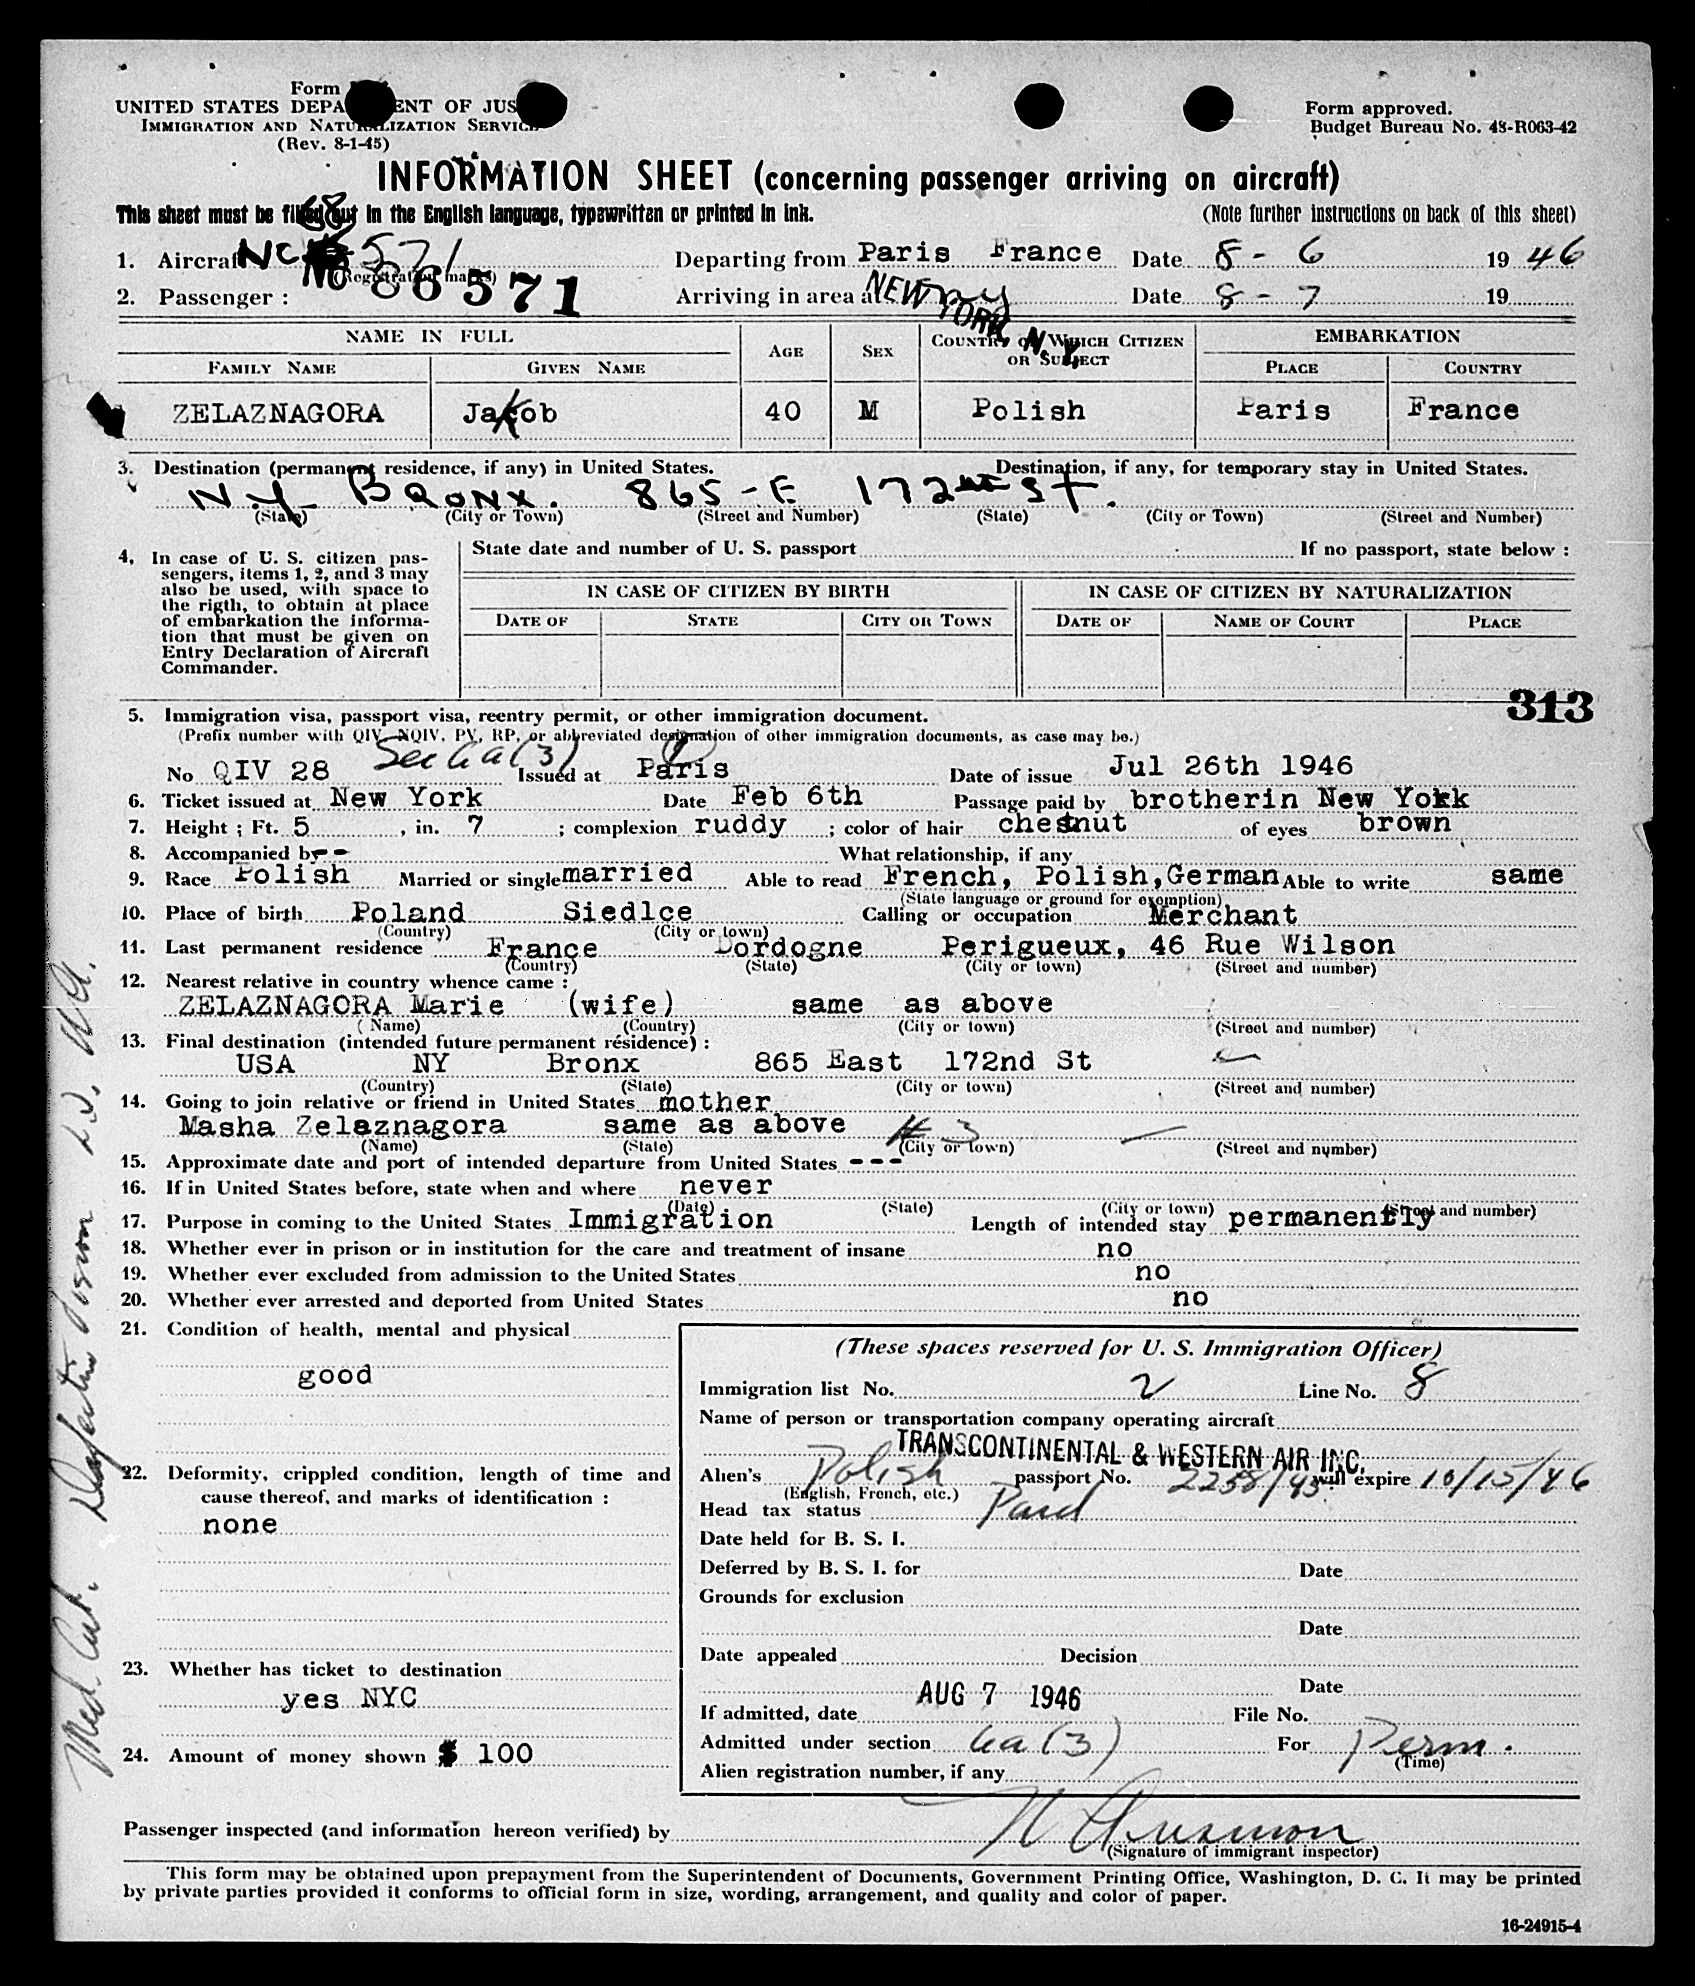 Form
UNITED STATES DEPA ENT OF JUS
IMMIGRATION AND NATURALIZATION SERVICE
(Rev. 8-1-45)
Form approved.
Budget Bureau No. 43-R063-42
INFORMATION SHEET (concerning passenger arriving on aircraft)
This sheet must be filled out in the English language, typewritten or printed in ink. (Note further instructions on back of this sheet)
1. Aircraft NC 571 Departing from Paris France Date 8 - 6 1946
(Registration marks)
NC 86571
2. Passenger : Arriving in area at NEW YORK, N.Y. ny Date 8 - 7 19
NAME IN FULL AGE SEX COUNTRY OF WHICH CITIZEN OR SUBJECT EMBARKATION
FAMILY NAME GIVEN NAME PLACE COUNTRY
ZELAZNAGORA Jakob 40 M Polish Paris France
3. Destination (permanent residence, if any) in United States. Destination, if any, for temporary stay in United States.
N.Y. BRONX. 865 - E 172nd ST.
(State) (City or Town) (Street and Number) (State) (City or Town) (Street and Number)
4. In case of U. S. citizen passengers, items 1, 2, and 3 may also be used, with space to the rigth, to obtain at place of embarkation the information that must be given on Entry Declaration of Aircraft Commander.
State date and number of U. S. passport If no passport, state below :
IN CASE OF CITIZEN BY BIRTH IN CASE OF CITIZEN BY NATURALIZATION
DATE OF STATE CITY OR TOWN DATE OF NAME OF COURT PLACE
313
5. Immigration visa, passport visa, reentry permit, or other immigration document.
(Prefix number with QIV, NQIV, PV, RP, or abbreviated designation of other immigration documents, as case may be.)
Sec 6a(3)
No QIV 28 Issued at Paris Date of issue Jul 26th 1946
6. Ticket issued at New York Date Feb 6th Passage paid by brotherin New York
7. Height ; Ft. 5 , in. 7 ; complexion ruddy ; color of hair chestnut of eyes brown
8. Accompanied by -- What relationship, if any
9. Race Polish Married or single married Able to read French, Polish,German Able to write same
(State language or ground for exemption)
10. Place of birth Poland Siedlce Calling or occupation Merchant
(Country) (City or town)
11. Last permanent residence France Dordogne Perigueux, 46 Rue Wilson
(Country) (State) (City or town) (Street and number)
12. Nearest relative in country whence came :
ZELAZNAGORA Marie (wife) same as above
(Name) (Country) (City or town) (Street and number)
13. Final destination (intended future permanent résidence) :
USA NY Bronx 865 East 172nd St
(Country) (State) (City or town) (Street and number)
14. Going to join relative or friend in United States mother
Masha Zelaznagora same as above # 3
(Name) (State) (City or town) (Street and number)
15. Approximate date and port of intended departure from United States ---
16. If in United States before, state when and where never
(Date) (State) (City or town) (Street and number)
17. Purpose in coming to the United States Immigration Length of intended stay permanently
18. Whether ever in prison or in institution for the care and treatment of insane no
19. Whether ever excluded from admission to the United States no
20. Whether ever arrested and deported from United States no
21. Condition of health, mental and physical
good
22. Deformity, crippled condition, length of time and cause thereof, and marks of identification :
none
23. Whether has ticket to destination
yes NYC
24. Amount of money shown $ 100
(These spaces reserved for U. S. Immigration Officer)
Immigration list No. 2 Line No. 8
Name of person or transportation company operating aircraft
TRANSCONTINENTAL & WESTERN AIR INC.
Alien's Polish passport No. 2258/45 will expire 10/15/46
(English, French, etc.)
Head tax status Paid
Date held for B. S. I.
Deferred by B. S. I. for Date
Grounds for exclusion
Date
Date appealed Decision
Date
If admitted, date AUG 7 1946 File No.
Admitted under section 6a(3) For Perm.
(Time)
Alien registration number, if any
Passenger inspected (and information hereon verified) by
(Signature of immigrant inspector)
This form may be obtained upon prepayment from the Superintendent of Documents, Government Printing Office, Washington, D. C. It may be printed
by private parties provided it conforms to official form in size, wording, arrangement, and quality and color of paper.
16-24915-4
Med. Cert.